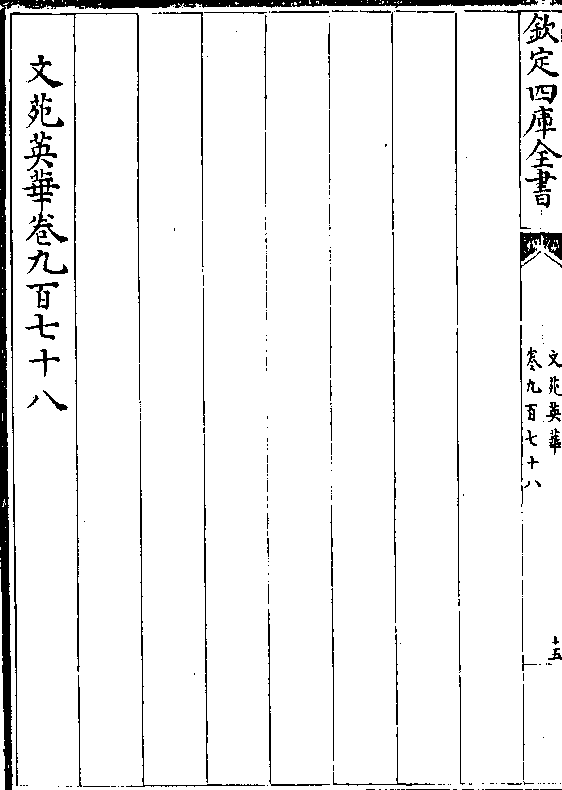 欽定四庫全書
文苑英華
卷九百七十八
十五
文苑英華卷九百七十八